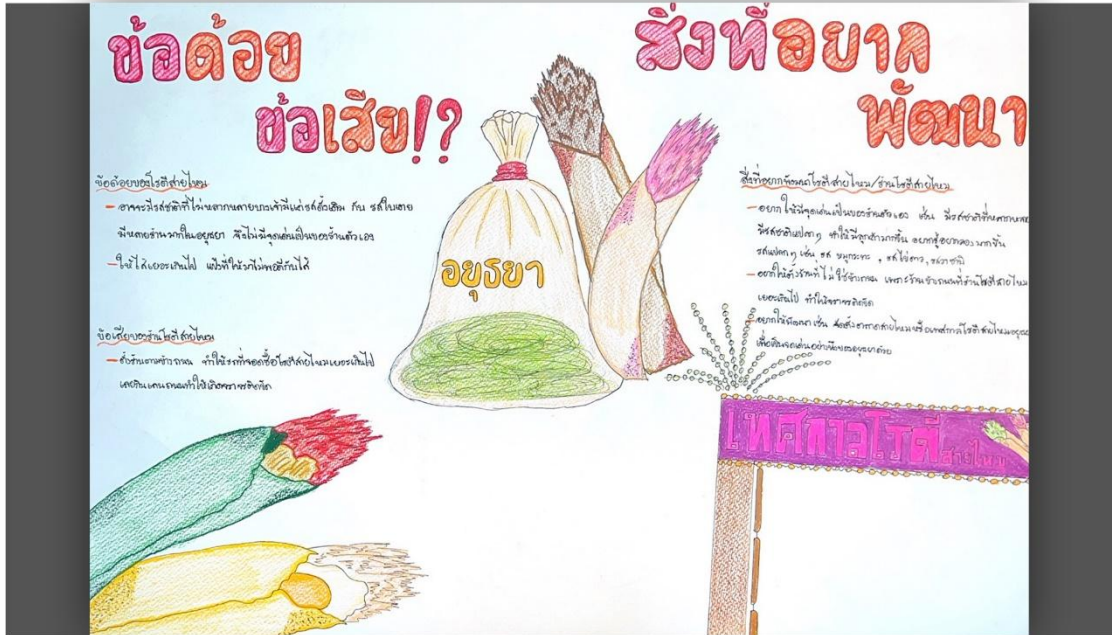 ข้อด้อย
ข้อเสีย!?
ข้อด้อยของโรตีสายไหม
- อาจจะมีรสชาติที่ไม่หลากหลายบางเจ้ามีแค่รสดั้งเดิม กับ รสใบเตย
มีหลายร้านมากในอยุธยา จึงไม่มีจุดเด่นเป็นของร้านตัวเอง
- ให้ไส้เยอะเกินไป แป้งที่ให้มาไม่พอดีกับไส้
ข้อเสียของร้านโรตีสายไหม
- ตั้งร้านตามข้างถนน ทำให้รถที่จอดซื้อโรตีสายไหมเยอะเกินไป
เลยกินเลนถนนทำให้เกิดจราจรติดขัด
อยุธยา
สิ่งที่อยาก
พัฒนา
สิ่งที่อยากพัฒนาโรตีสายไหม/ร้านโรตีสายไหม
- อยากให้มีจุดเด่นเป็นของร้านตัวเอง เช่น มีรสชาติที่หลากหลาย
มีรสชาติแปลกๆ ทำให้มีลูกค้ามากขึ้น อยากรู้อยากลองมากขึ้น
รสแปลกๆ เช่น รส หมูกระทะ , รสไข่ดาว ,
- อยากให้ตั้งร้านที่ไม่ใช่ข้างถนน เพราะร้านข้างถนนที่ร้านโรตีสายไหม
เยอะเกินไป ทำให้จราจรติดขัด
- อยากให้พัฒนา เช่น จัดสายไหมหรือเทศกาลโรตีสายไหมอยุธยา
เพื่อเป็นจุดเด่นอย่างนึงของอยุธยาด้วย
เทศกาลโรตีสายไหม